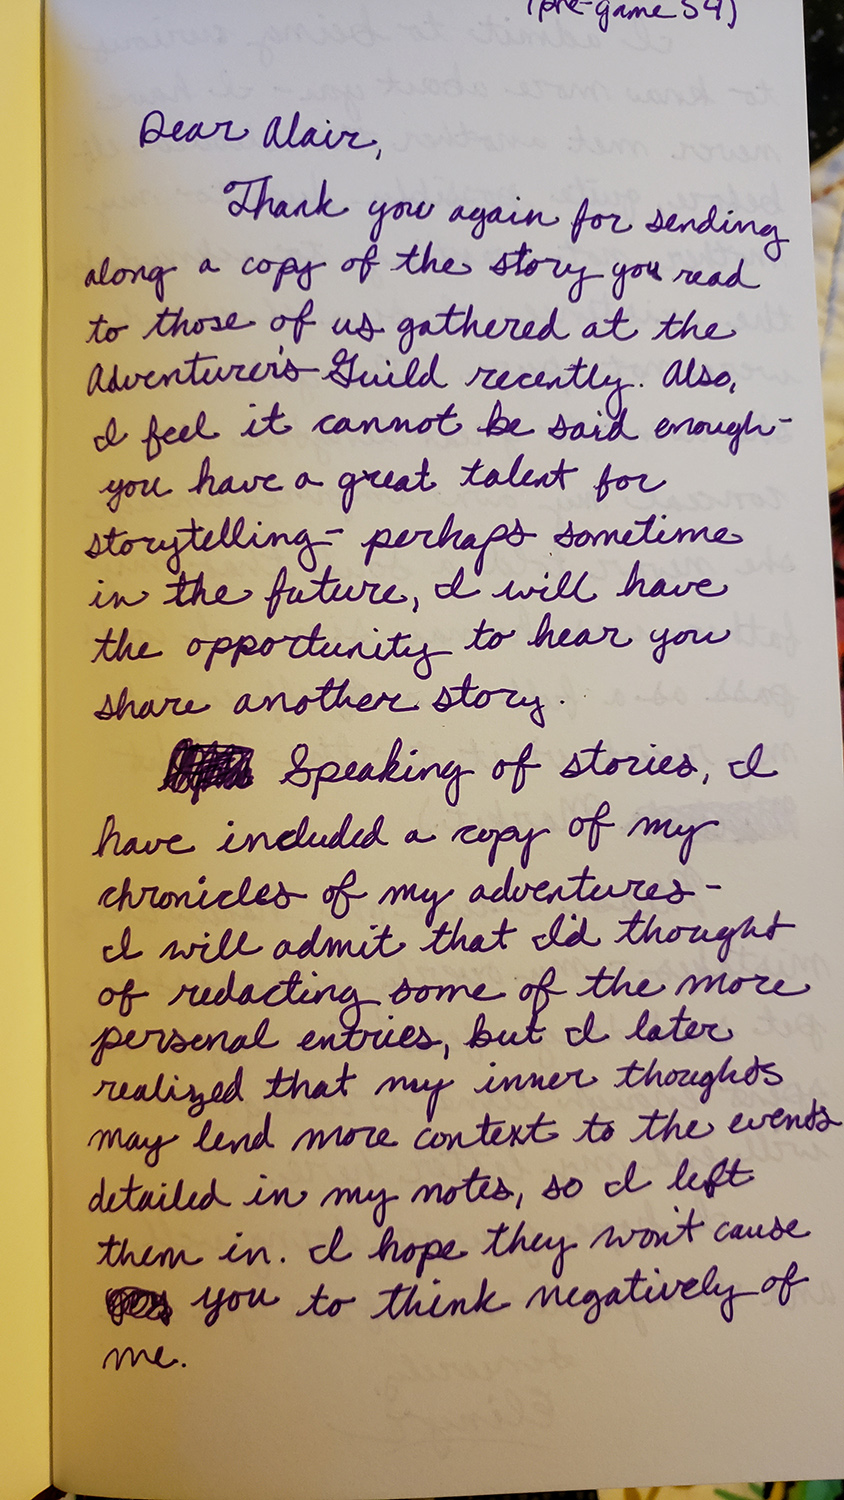 (pre-game 54)
Dear Alair,
Thank you again for sending
along a copy of the story you read
to those of us gathered at the
Adventurer's Guild recently. Also,
I feel it cannot be said enough-
you have a great talent for
storytelling- perhaps sometime
in the future, I will have
the opportunity to hear you
share another story.
Speaking of stories, I
have included a copy of my
chronicles of my adventures-
I will admit that I'd thought
of redacting some of the more
personal entries, but I later
realized that my inner thoughts
may lend more context to the events
detailed in my notes, so I left
them in. I hope they won't cause
you to think negatively of
me.